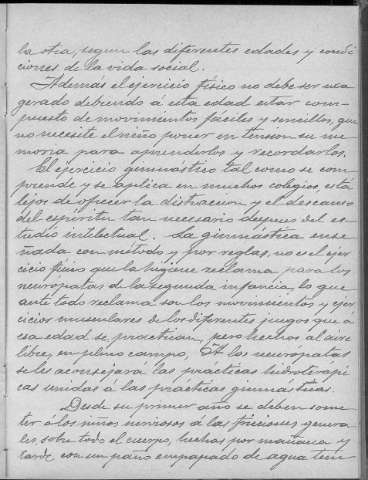 la otra, segun las diferentes edades y condi
ciones de la vida social.
Además el ejercicio físico no debe ser exa
gerado debiendo á esta edad estar com-
puesto de movimientos fáciles y sencillos, que
no necesite el niño poner en tension su me
moria para aprenderlos y recordarlos.
El ejercicio gimnástico tal como se com
prende y se aplica en muchos colegios, está
lejos de ofrecer la distraccion y el descanso
del espíritu tan necesario despues del es-
tudio intelectual. La gimnástica ense
ñada con método y por reglas, no es el ejer
cicio físico que la higiene reclama para los
neurópatas de la segunda infancia, lo que
ante todo reclama son los movimientos y ejer
cicios musculares de los diferentes juegos que á
esa edad se practican, pero hechos al aire
libre, en pleno campo, A los neuropatas
se les aconsejará las prácticas hidroterápi
cas unidas á las prácticas gimnásticas.
Desde su primer año se deben some
ter á los niños nerviosos á las fricciones genera
les, sobre todo el cuerpo, hechas por mañana y
tarde con un paño empapado de agua tem